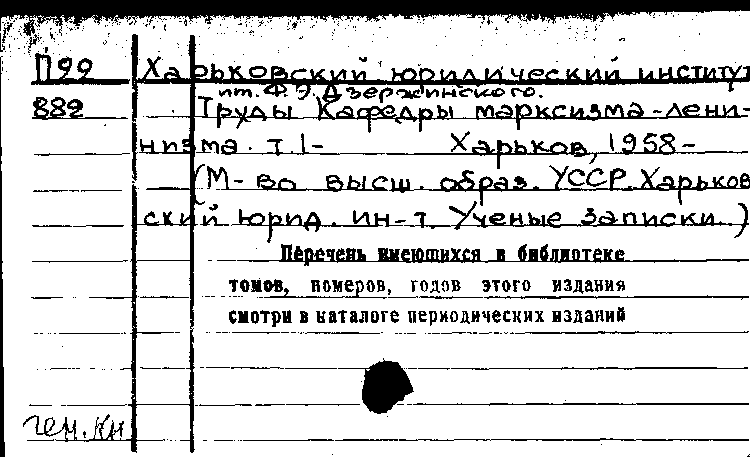 П99 Харьковский юридический институт
им. Ф.Э. Дзержинского.
882 Труды Кафедры марксизма-лени-
низма. т. 1- Харьков, 1958-
(М-во высш. образ. УССР. Харьков
ский юрид. ин-т. Ученые записки.)
Перечень имеющихся в библиотеке
томов, номеров, годов этого издания
смотри в каталоге периодических изданий
ген. кн